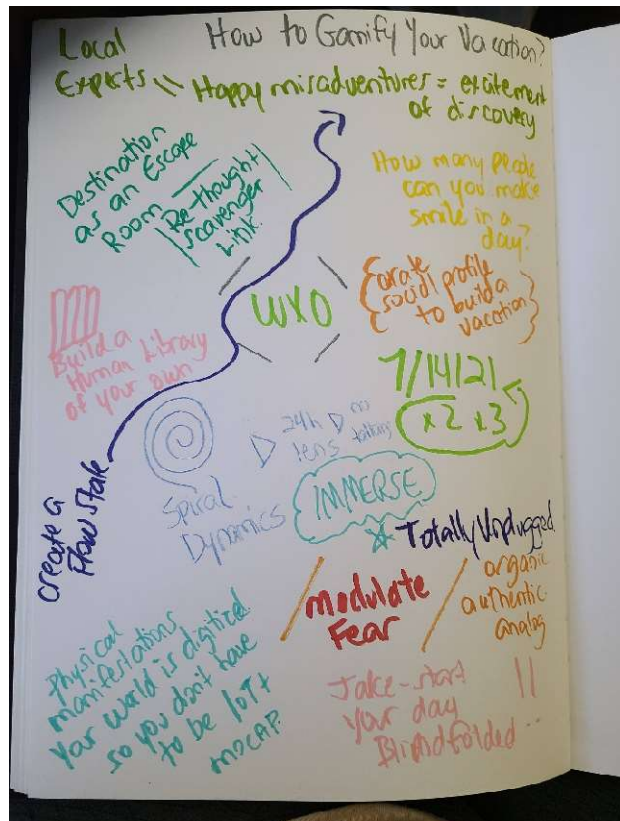 How to Gamify Your Vacation?
Local
Experts
Happy misadventures = excitement
of discovery
Destination
as an Escape
Room
Re-thought
scavenger
Link
How many people
can you make
smile in a
day?
WXO
social profile
to build a
vacation
Build a
Human Library
of your own
7/14/21
x2 x3
24h
no
Spiral
Dynamics
IMMERSE
Create a
Flow State
Totally Unplugged
Modulate
Fear
organic
authentic
analog
Physical
manifestations
your world is digitized
so you don't have
to be IoT+
MOCAP
Jake-start
your day
Blindfolded